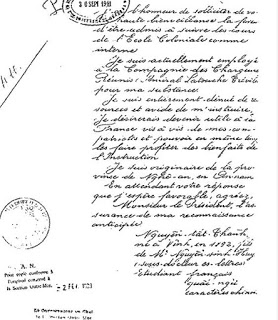 l'honneur de solliciter de vo
haute bienveillance la fave
d'être admis à suivre les cours
de l'École Coloniale comme
interne
Je suis actuellement employé
à la Compagnie des Chargeurs
Réunis: Amiral Latouche-Tréville
pour ma subsistance
Je suis entièrement dénué de re
sources et avide de m'instruire.
Je désirerais devenir utile à la
France vis à vis de mes com-
patriotes et pouvoir en même tem
les faire profiter des bienfaits de
l'Instruction
Je suis originaire de la pro
vince de Nghê-an, en Annam
En attendant votre réponse
que j'espère favorable, agréez,
Monsieur le Président, l'as
surance de ma reconnaissance
anticipée
Nguyễn Tất Thành,
né à Vinh, en 1892, fils
de Mr Nguyễn Sinh Huy
Étudiant français
quốc-ngữ
caractères chinois
A. N.
Pour copie conforme à
l'original conservé à
la Section Outre-Mer